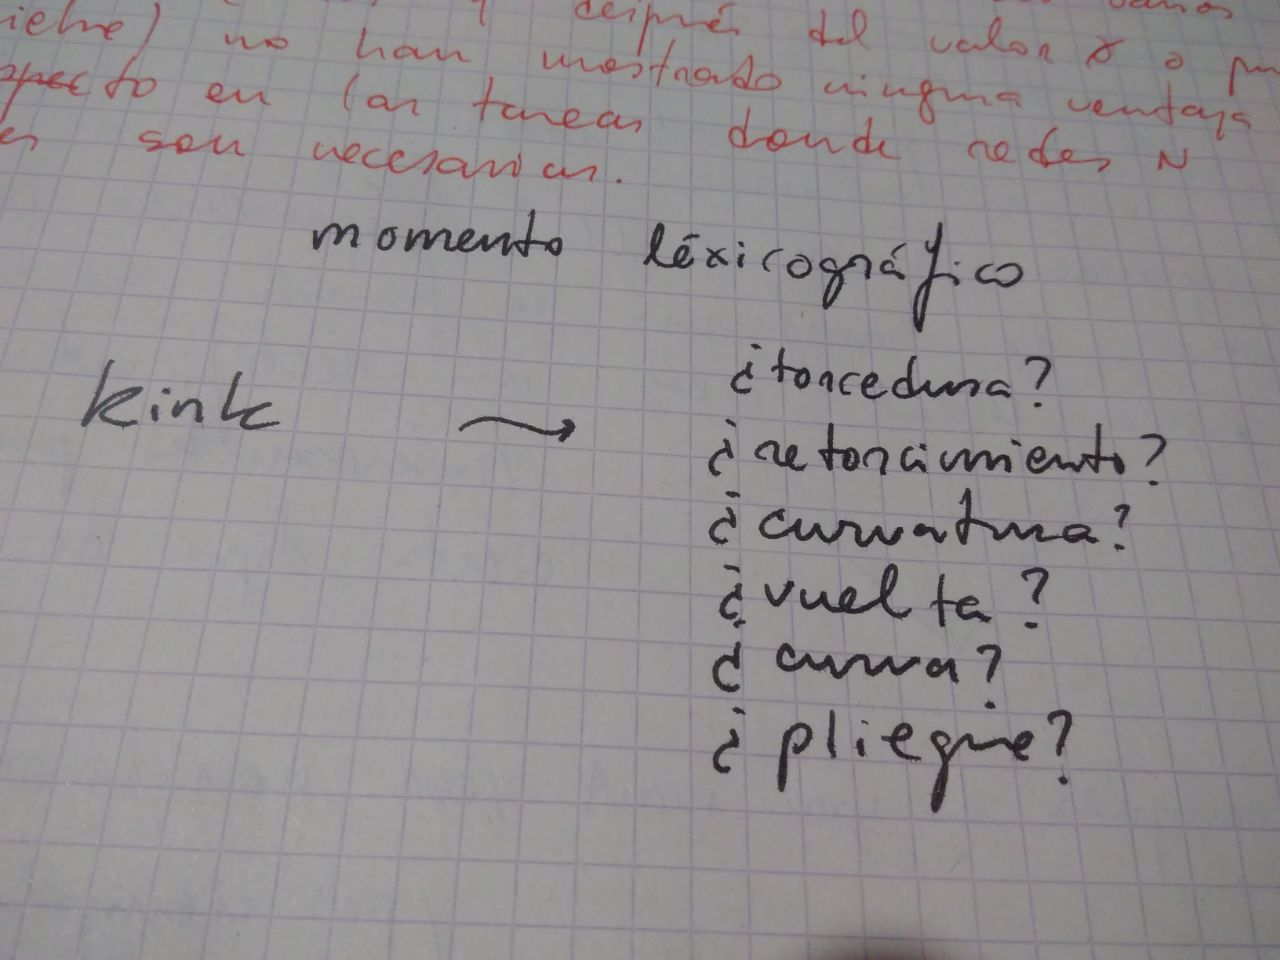 después del valor γ o
no han mostrado ninguna ventaja
en las tareas donde redes N
son necesarias.
momento léxicográfico
kink → ¿torcedura?
¿retorcimiento?
¿curvatura?
¿vuelta?
¿curva?
¿pliegue?